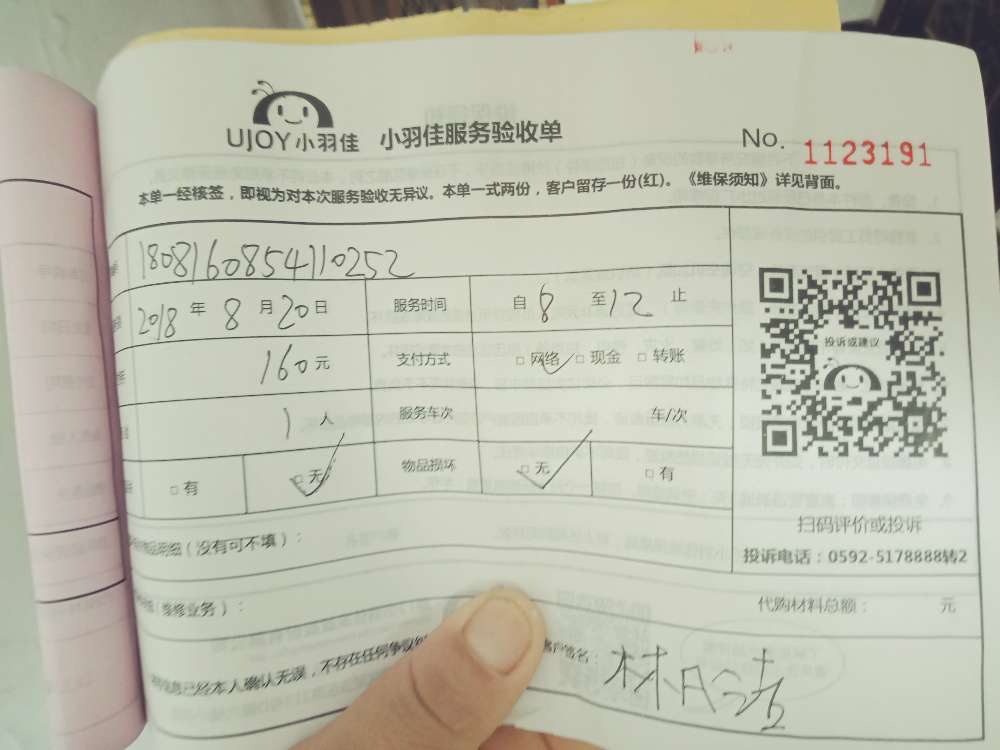 UJOY小羽佳 小羽佳服务验收单 No. 1123191
本单一经核签，即视为对本次服务验收无异议。本单一式两份，客户留存一份(红)。《维保须知》详见背面。
1808160854110252
2018 年 8 月 20 日 服务时间 自 8 至 12 止
160 元 支付方式 □ 网络 □ 现金 □ 转账
投诉或建议
1 人 服务车次 车/次
□ 有 □ 无 物品损坏 □ 无 □ 有
扫码评价或投诉
明细（没有可不填）：
投诉电话：0592-5178888转2
维修业务）：
代购材料总额： 元
已经本人确认无误，不存在任何争议
客户签名：